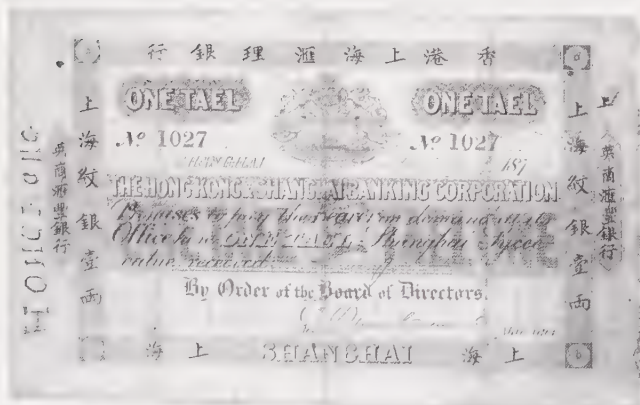 行銀理滙海上港香
ONE TAEL ONE TAEL
No 1027 No 1027
SHANGHAI 187
THE HONGKONG & SHANGHAI BANKING CORPORATION
Promises to pay the Bearer on demand at its
Office here ONE TAEL Shanghai Sycee
value received
By Order of the Board of Directors.
海 上 SHANGHAI 海 上
上海紋銀壹兩
上海紋銀壹兩
英商滙豐銀行
英商滙豐銀行